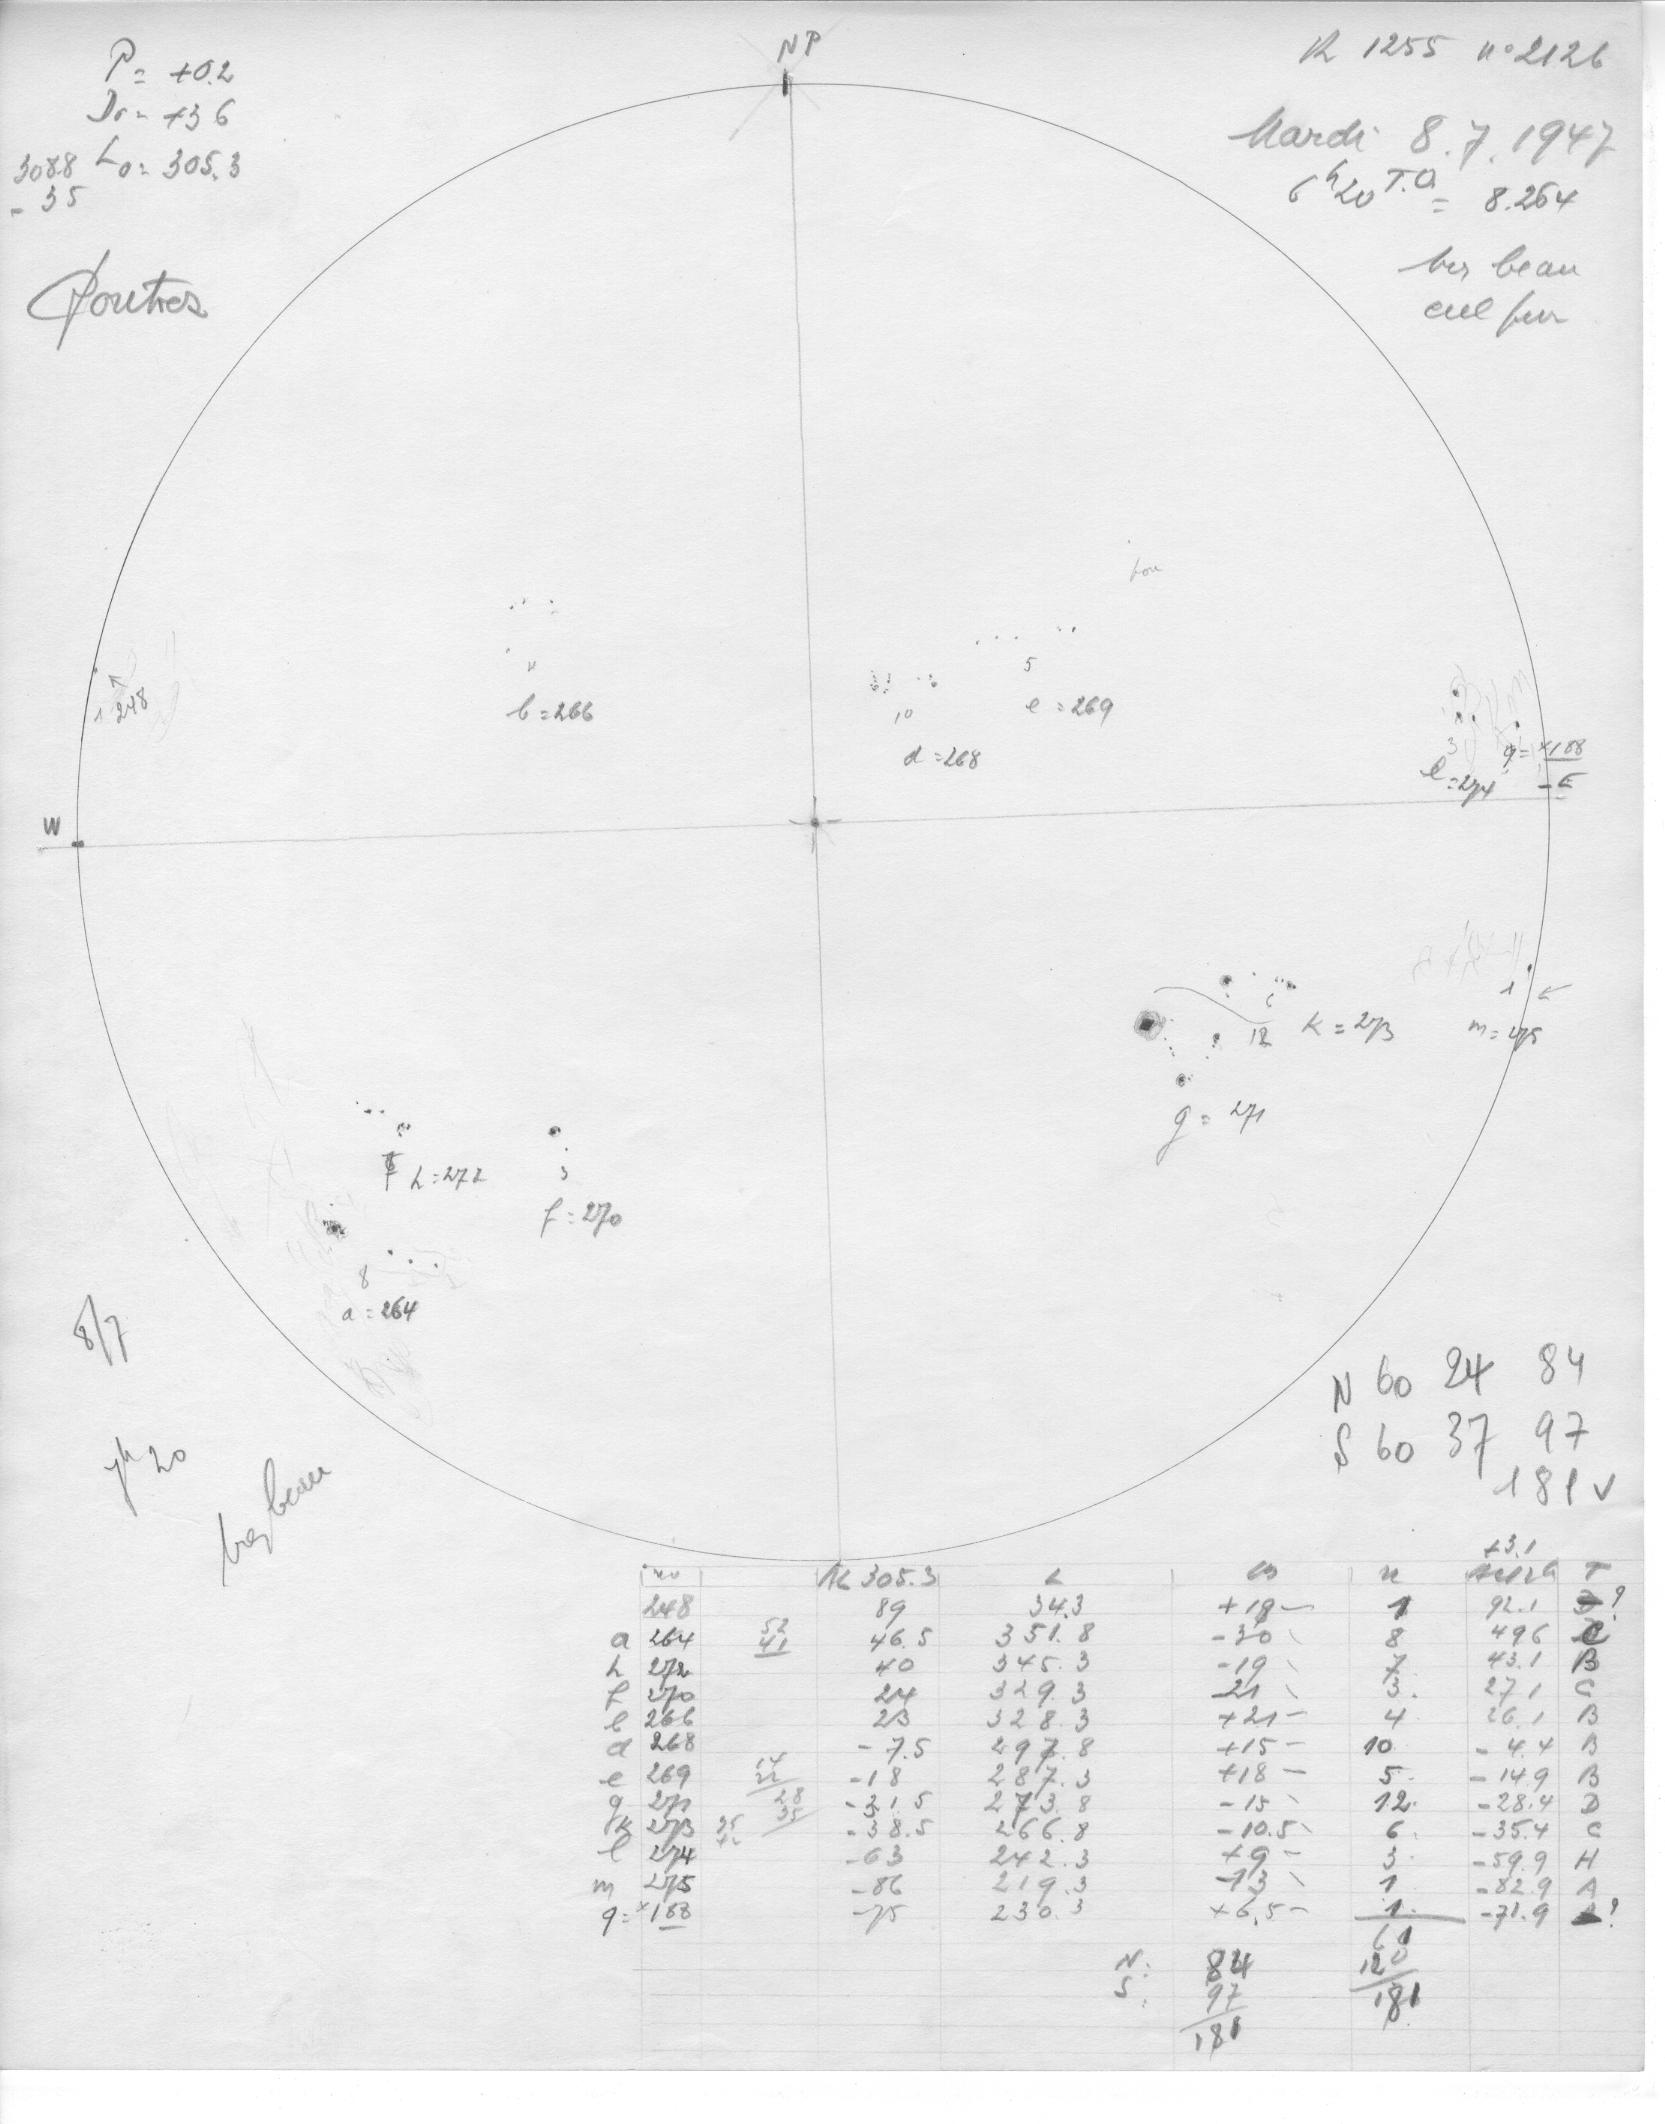 P = +0.2
D₀ = +3.6
L₀ = 305.3
308.8
- 35
NP
R 1255 n° 2126
Mardi 8.7.1947
6 h 20 T.O = 8.264
tres beau
ciel pur
W
1
248
4
b = 266
10
d = 268
5
e = 269
3
l = 274
q = ×188
E
1
m = 275
6
k = 273
12
g = 271
7
h = 272
3
f = 270
8
a = 264
8/7
7h 20
tres beau
N 60 24 84
S 60 37 97
181 v
+3.1
no 305.3 L B n T
248 89 34.3 +18 1 92.1 ?
a 264 52 41 46.5 351.8 -30 8 49.6 C
h 272 40 345.3 -19 7 43.1 B
f 270 24 329.3 -21 3 27.1 C
b 266 23 328.3 +21 4 26.1 B
d 268 -7.5 297.8 +15 10 -4.4 B
e 269 -18 287.3 +18 5 -14.9 B
g 271 28 35 -31.5 273.8 -15 12 -28.4 D
k 273 -38.5 266.8 -10.5 6 -35.4 C
l 274 -63 242.3 +9 3 -59.9 H
m 275 -86 219.3 -13 1 -82.9 A
q = ×188 -75 230.3 +6.5 1 -71.9 ?
61
N: 84 120
S: 97 181
181